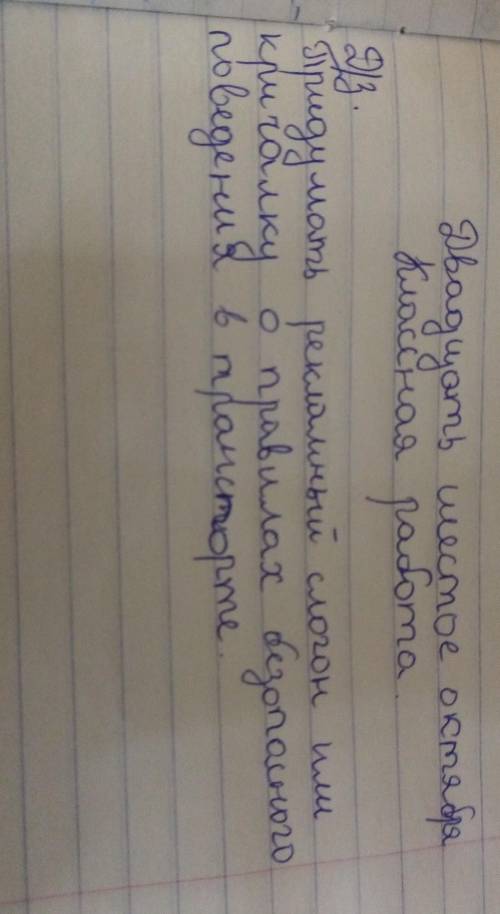 Двадцать шестое октября
Классная работа.
Д/з.
Придумать рекламный слоган или
кричалку о правилах безопасного
поведения в транспорте.